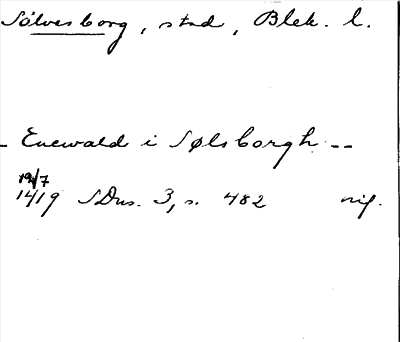 Sölvesborg, stad, Blek. l.
- Enewald i Sølsborgh --
19/7
1419 SDns. 3, s. 482 orig.